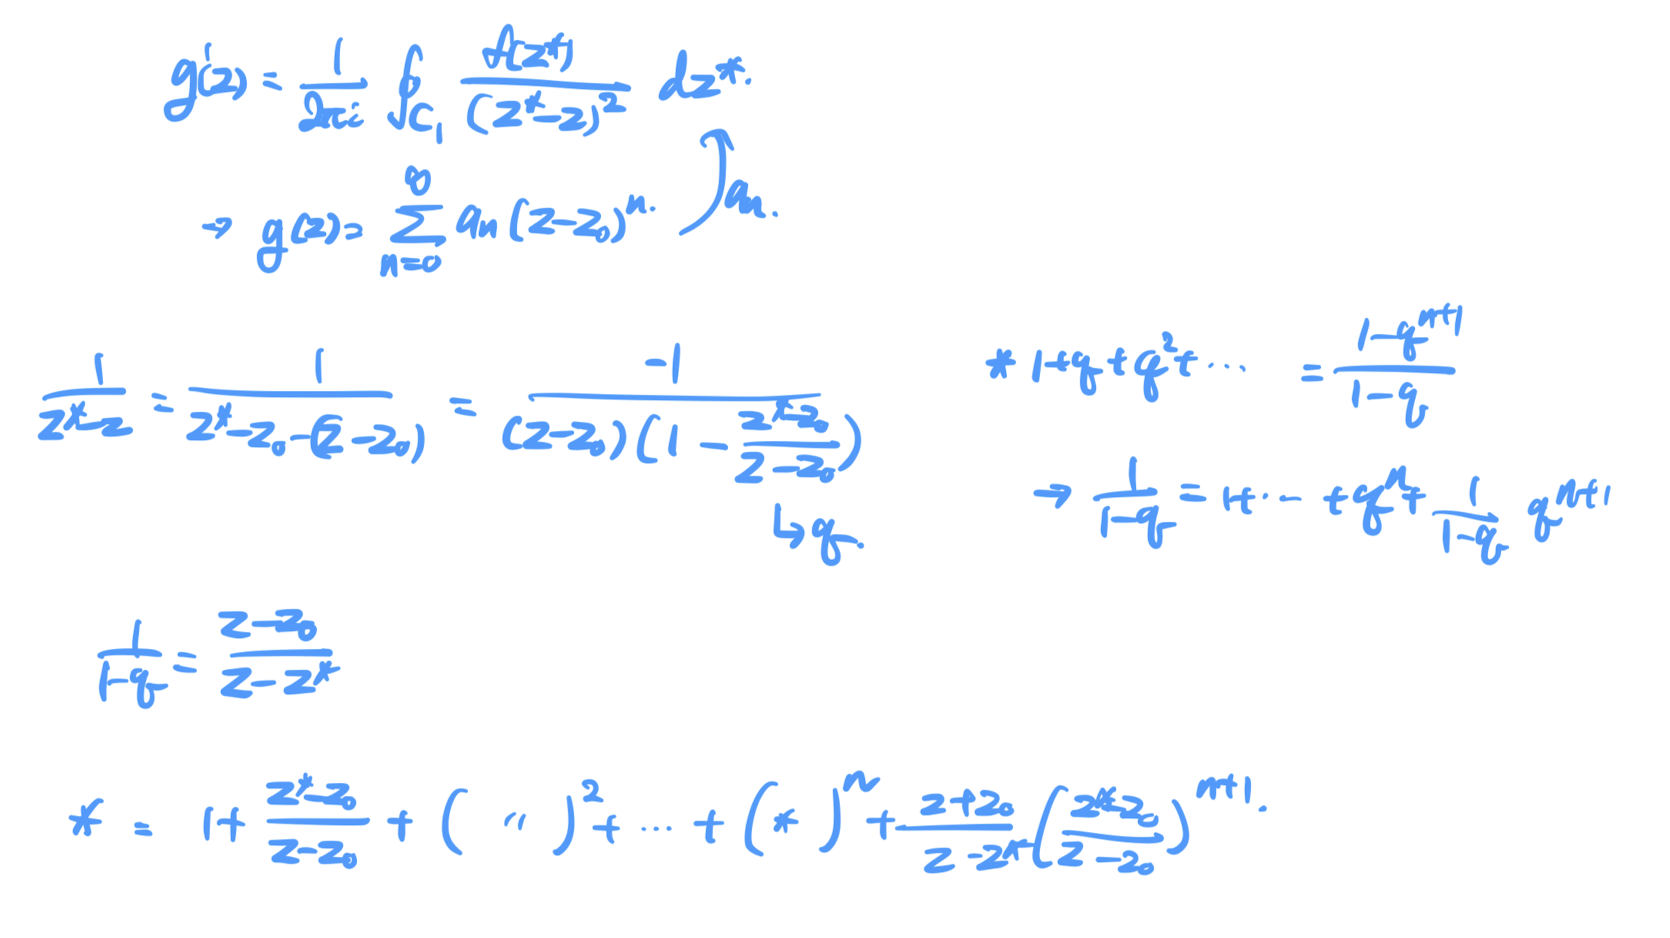 g'(z) = \frac{1}{2\pi i} \oint_{C_1} \frac{f(z^*)}{(z^*-z)^2} dz^*.
→ g(z) = \sum_{n=0}^{\infty} a_n (z-z_0)^n. a_n.
\frac{1}{z^*-z} = \frac{1}{z^*-z_0-(z-z_0)} = \frac{-1}{(z-z_0)(1-\frac{z^*-z_0}{z-z_0})}
↳ q.
* 1+q+q^2+ ⋯ = \frac{1-q^{n+1}}{1-q}
→ \frac{1}{1-q} = 1+ ⋯ +q^n + \frac{1}{1-q} q^{n+1}
\frac{1}{1-q} = \frac{z-z_0}{z-z^*}
* = 1+ \frac{z^*-z_0}{z-z_0} + ( 〃 )^2 + ⋯ + (*)^n + \frac{z+z_0}{z-z^*} (\frac{z^*-z_0}{z-z_0})^{n+1}.